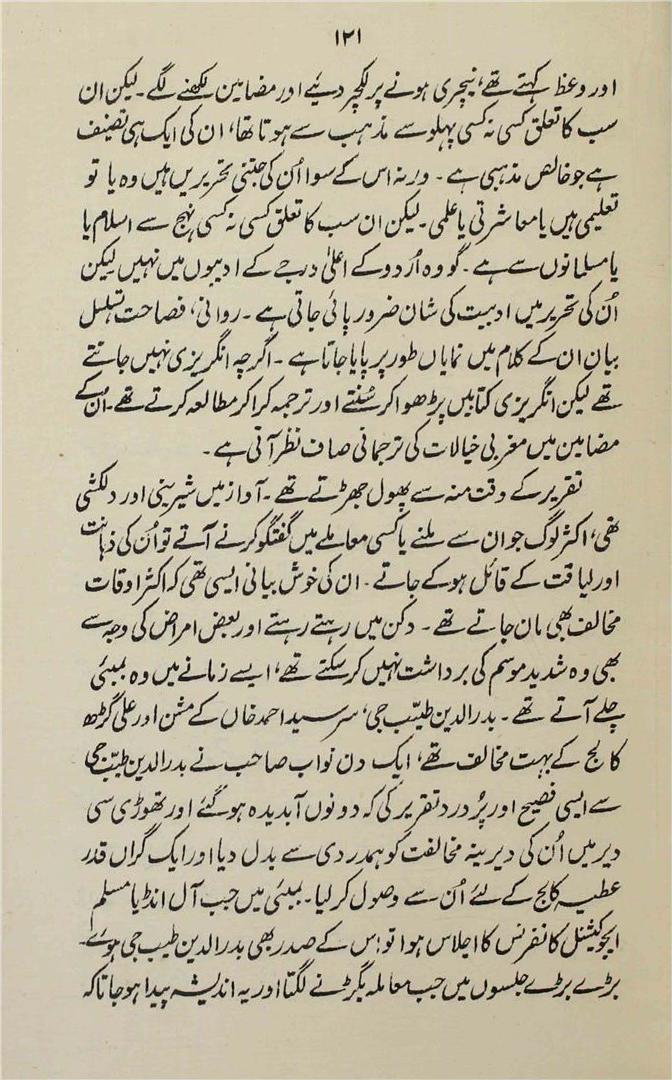 ۱۲۱
اور وعظ کہتے تھے، نیچری ہونے پر لکچر دیئے اور مضامین لکھنے لگے۔ لیکن ان
سب کا تعلق کسی نہ کسی پہلو سے مذہب سے ہوتا تھا، ان کی ایک ہی تصنیف
ہے جو خالص مذہبی ہے۔ ورنہ اس کے سوا اُن کی جتنی تحریریں ہیں وہ یا تو
تعلیمی ہیں یا معاشرتی یا علمی۔ لیکن ان سب کا تعلق کسی نہ کسی نہج سے اسلام یا
یا مسلمانوں سے ہے۔ گو وہ اُردو کے اعلیٰ درجے کے ادیبوں میں نہیں لیکن
اُن کی تحریر میں ادبیت کی شان ضرور پائی جاتی ہے۔ روانی، فصاحت تسلسل
بیان ان کے کلام میں نمایاں طور پر پایا جاتا ہے۔ اگرچہ انگریزی نہیں جانتے
تھے لیکن انگریزی کتابیں پڑھوا کر سُنتے اور ترجمہ کرا کر مطالعہ کرتے تھے۔ اُن کے
مضامین میں مغربی خیالات کی ترجمانی صاف نظر آتی ہے۔
تقریر کے وقت منہ سے پھول جھڑتے تھے۔ آواز میں شیرینی اور دلکشی
تھی، اکثر لوگ جو ان سے ملنے یا کسی معاملے میں گفتگو کرنے آتے تو اُن کی ذہانت
اور لیاقت کے قائل ہو کے جاتے۔ ان کی خوش بیانی ایسی تھی کہ اکثر اوقات
مخالف بھی مان جاتے تھے۔ دکن میں رہتے رہتے اور بعض امراض کی وجہ سے
بھی وہ شدید موسم کی برداشت نہیں کر سکتے تھے، ایسے زمانے میں وہ بمبئی
چلے آتے تھے۔ بدرالدین طیّب جی، سر سید احمد خاں کے مشن اور علی گڑھ
کالج کے بہت مخالف تھے، ایک دن نواب صاحب نے بدرالدین طیّب جی
سے ایسی فصیح اور پُر درد تقریر کی کہ دونوں آبدیدہ ہو گئے اور تھوڑی سی
دیر میں اُن کی دیرینہ مخالفت کو ہمدردی سے بدل دیا اور ایک گراں قدر
عطیہ کالج کے لئے اُن سے وصول کر لیا۔ بمبئی میں جب آل انڈیا مسلم
ایجوکیشنل کانفرنس کا اجلاس ہوا تو اس کے صدر بھی بدرالدین طیب جی ہوے۔
بڑے بڑے جلسوں میں جب معاملہ بگڑنے لگتا اور یہ اندیشہ پیدا ہو جاتا کہ